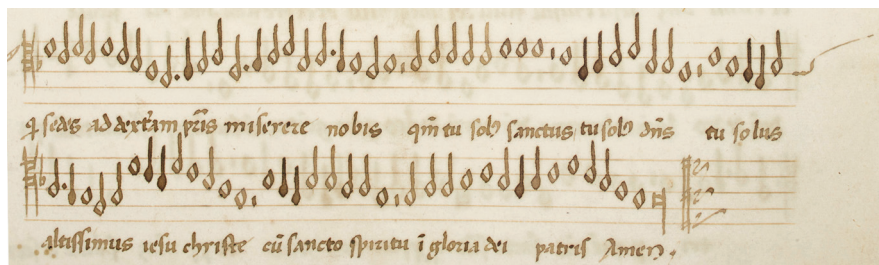 q̄ sedes ad dexterā pr̄is miserere nobis qm̄ tu solꝰ sanctus tu solꝰ dn̄s tu solus
altissimus iesu christe cū sancto spiritu ī gloria dei patris Amen.